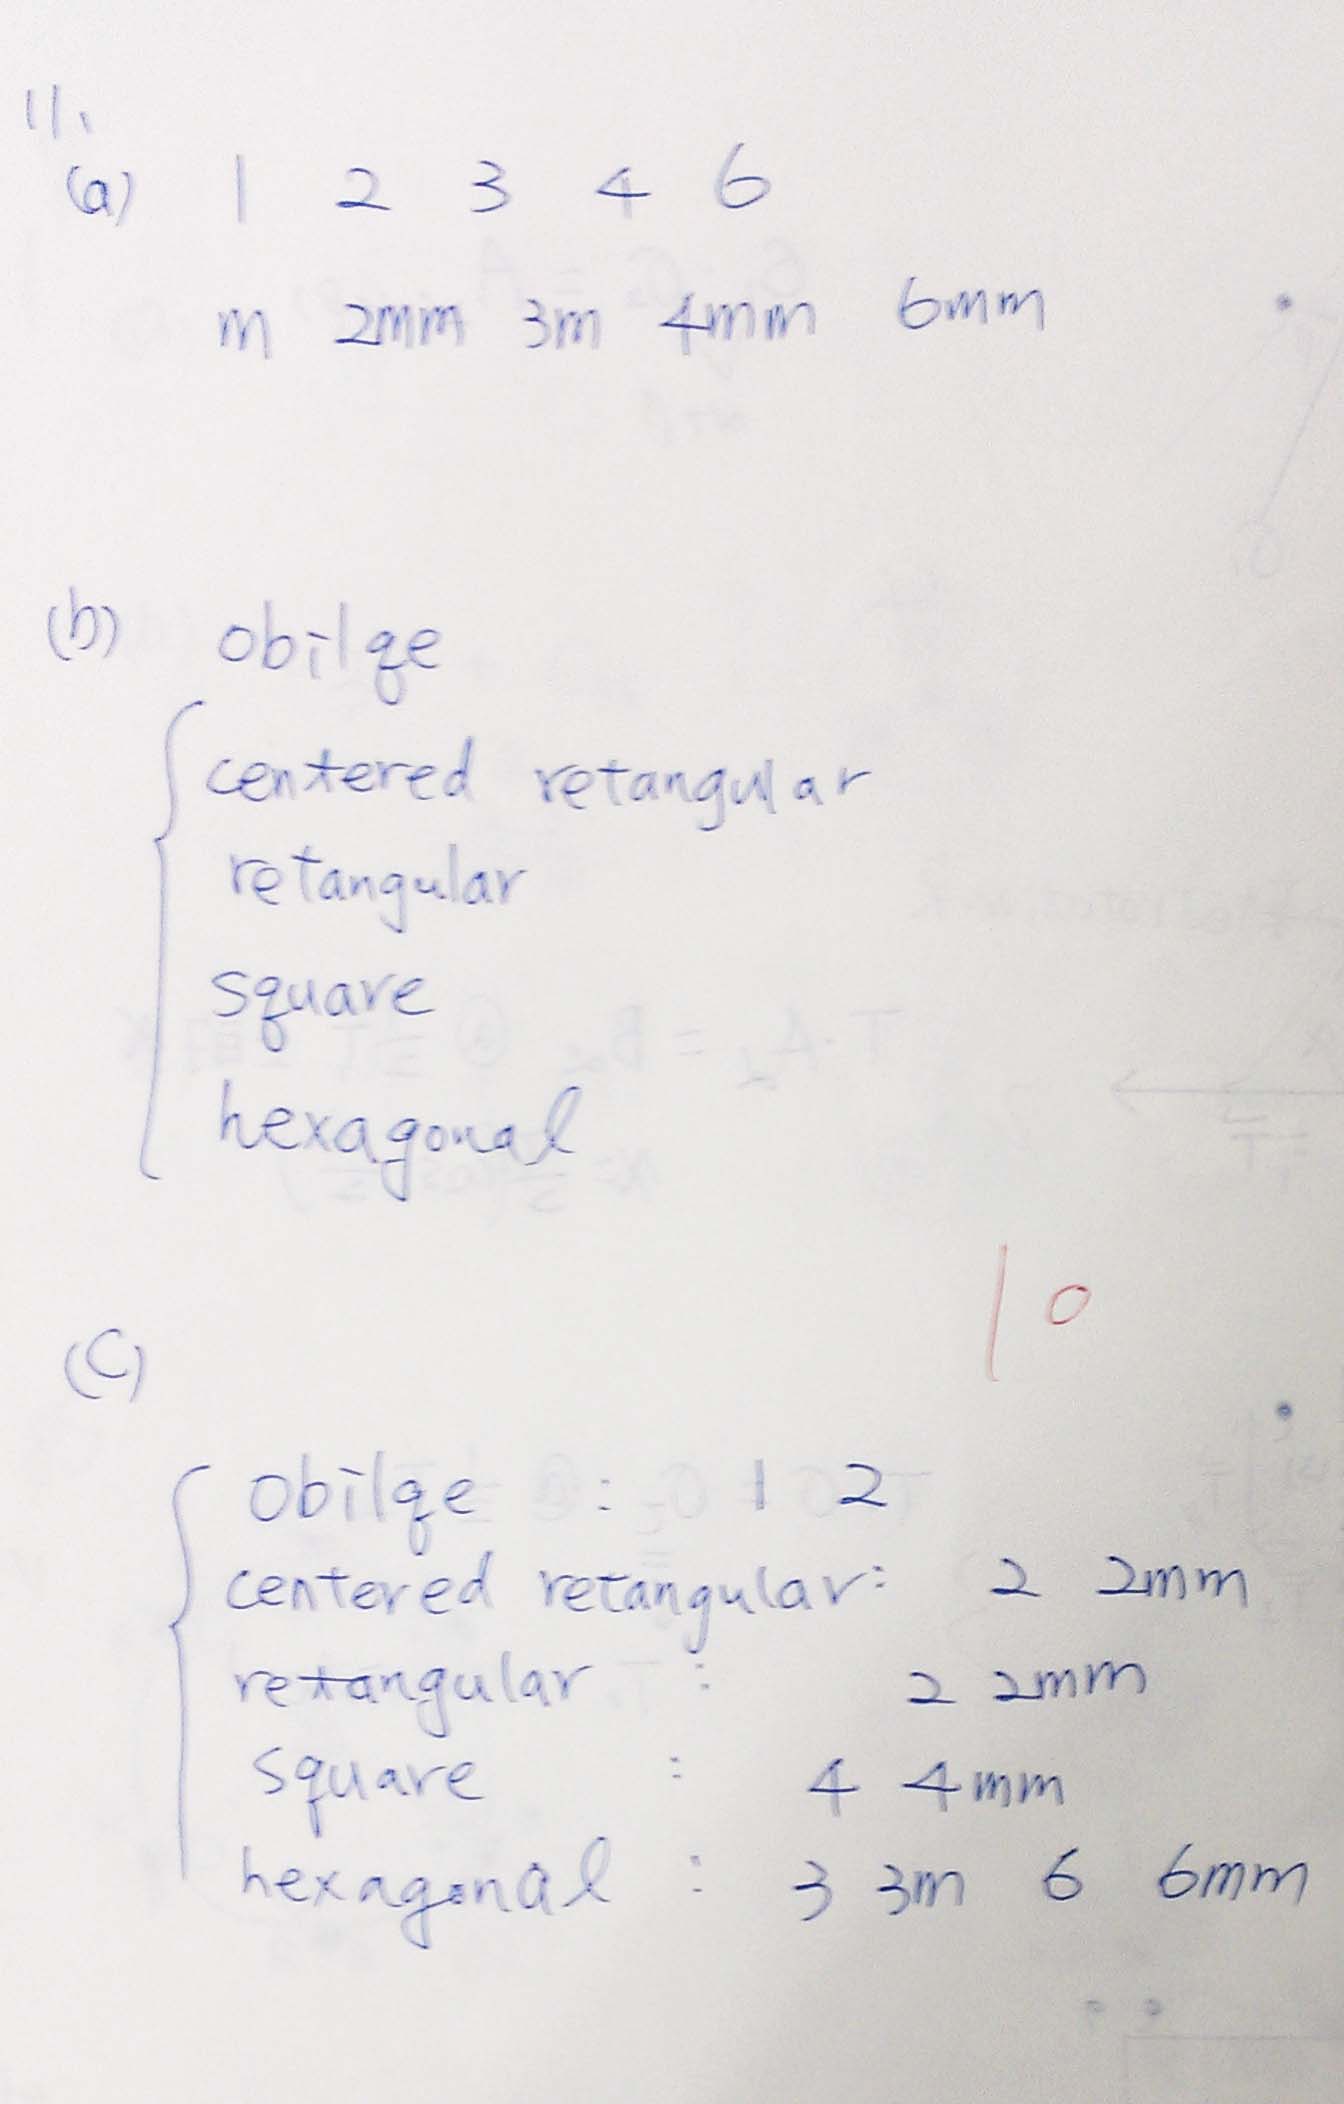 11.
(a) 1 2 3 4 6
m 2mm 3m 4mm 6mm
(b) obilqe
centered retangular
retangular
square
hexagonal
10
(C)
obilqe : 1 2
centered retangular: 2 2mm
retangular : 2 2mm
square : 4 4mm
hexagonal : 3 3m 6 6mm